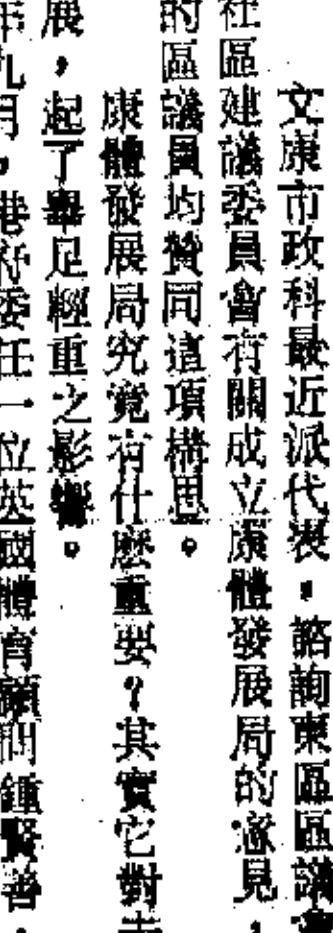 文康市政科最近派代表，諮詢東區區議會
社區建議委員會有關成立康體發展局的意見，
的區議員均贊同這項構思。
康體發展局究竟有什麼重要？其實它對
展，起了舉足輕重之影響。
年九月，港府委任一位英國體育顧問鍾賢善，